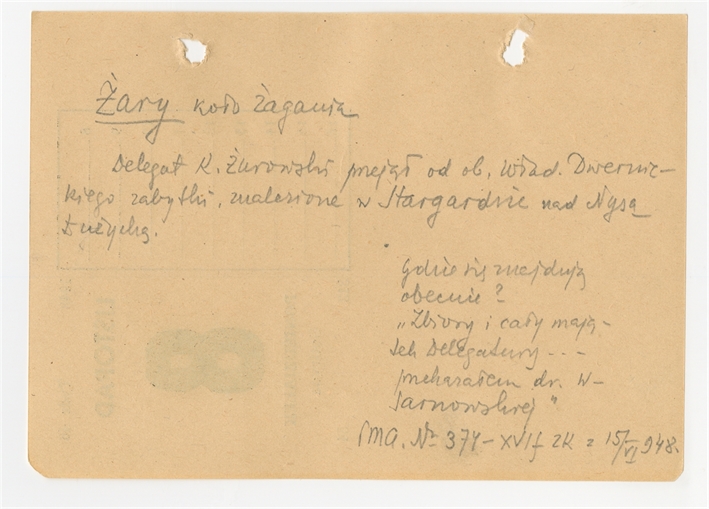 Żary koło Żagania
Delegat K. Żurowski przejął od ob. Wład. Dwernic-
kiego zabytki, znalezione w Stargardzie nad Nysą
Łużycką.
Gdzie się znajdują
obecnie?
„Zbiory i cały mają-
tek Delegatury ---
przekazałem dr. W-
Tarnowskiej"
PMA. Nr 374-XVIf ZK z 15/VI 948.
LISTOPAD
8